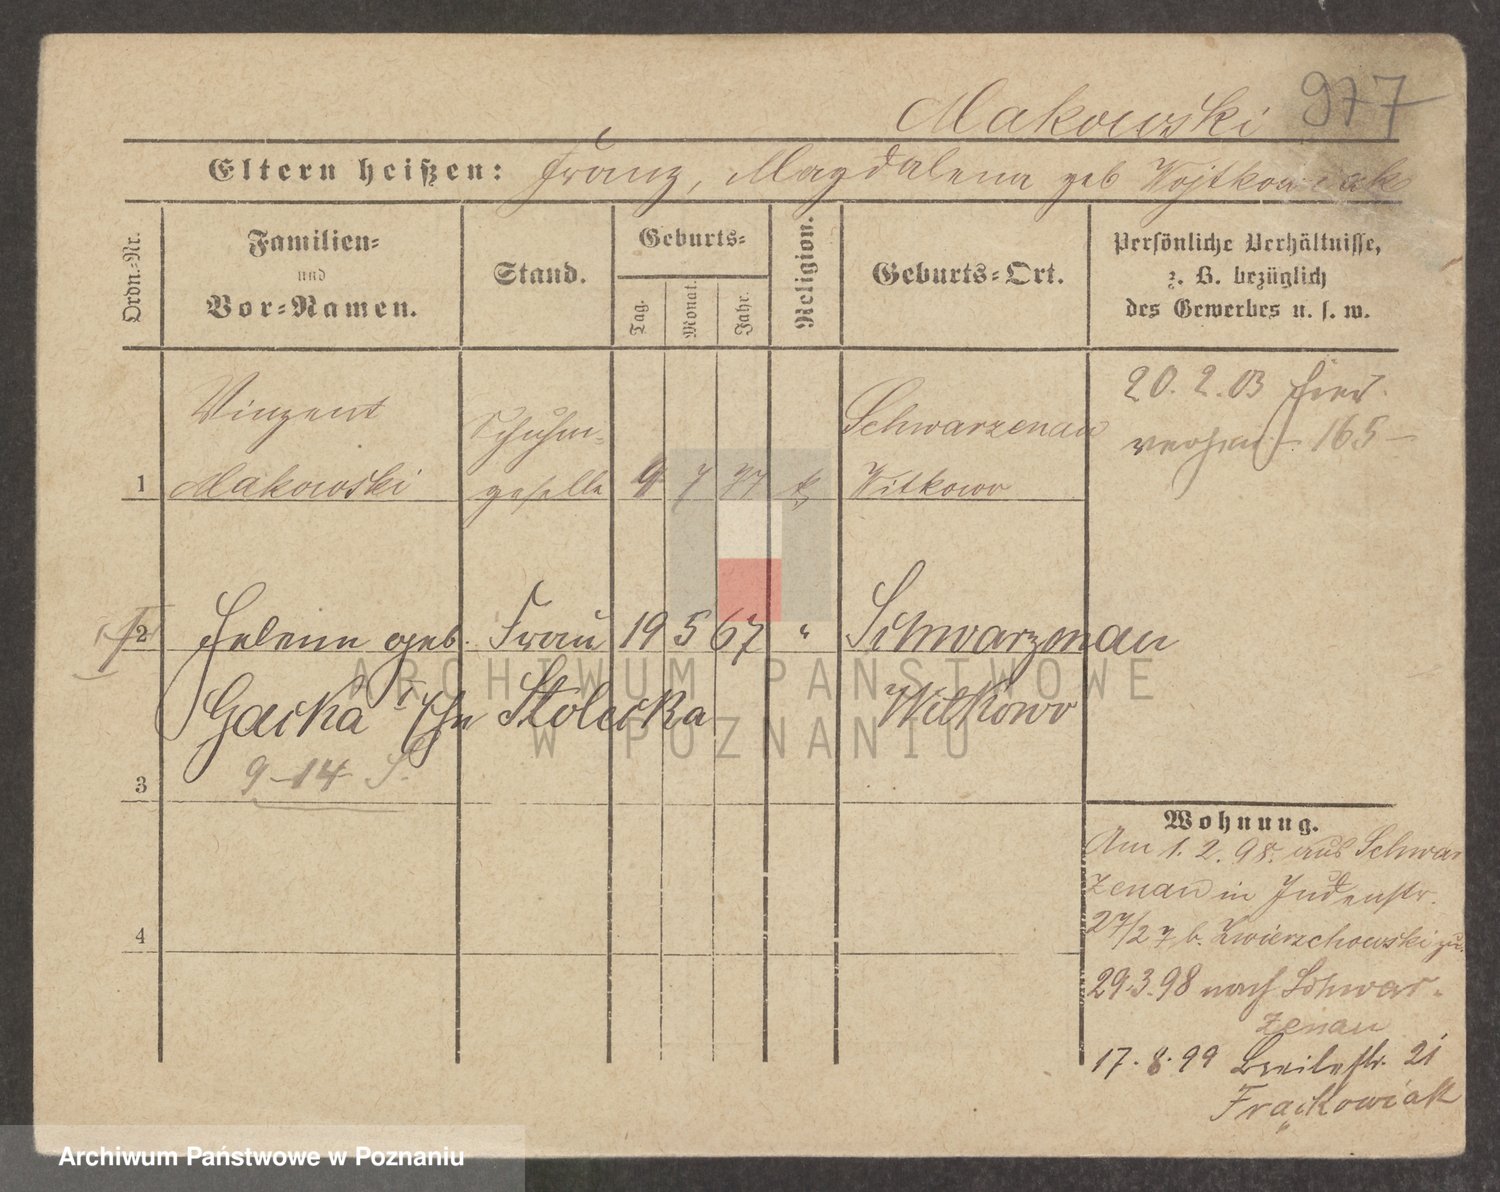 Makowski 977
Eltern heißen: Franz, Magdalena geb Wojtkowiak
Ordn.-Nr.
Familien-
und
Vor-Namen.
Stand.
Geburts-
Tag.
Monat.
Jahr.
Religion.
Geburts-Ort.
Persönliche Verhältnisse,
z. B. bezüglich
des Gewerbes u. s. w.
Vinzent Schuhm- Schwarzenau
1 Makowski geselle 9 7 77 k Witkowo
20. 2. 03 hier
165
2 Helene geb. Frau 19 5 67 " Schwarzenau
Gacka Stolecka Witkowo
9-14
3
4
Wohnung.
Am 1. 2. 98. aus Schwar
zenau in Judenstr.
27/27 b. Zwierzchowski zu.
29.3.98 nach Schwar-
zenau
17. 8. 99 Breitestr. 21
Frąckowiak
ARCHIWUM PAŃSTWOWE
W POZNANIU
Archiwum Państwowe w Poznaniu